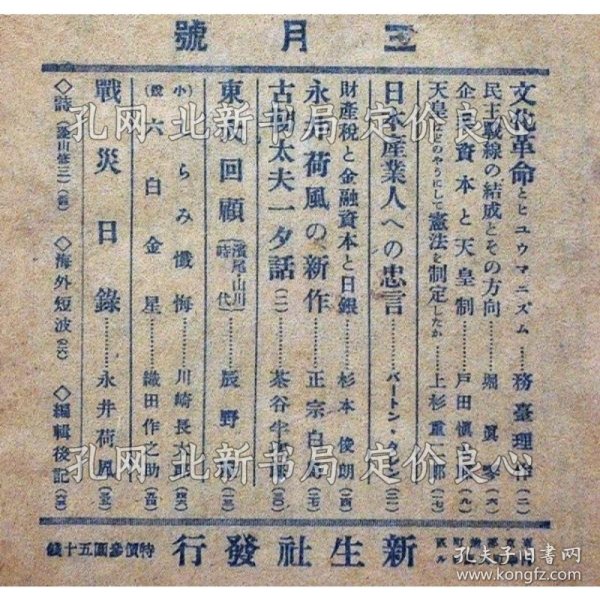 三月號
文化革命とヒユウマニズム……務臺理作(二)
民主戰線の結成とその方向……堀眞琴(六)
企業資本と天皇制……戸田愼(九)
天皇はどのやうにして憲法を制定したか……上杉重二郎(一七)
日本産業人への忠言……バートン・(三)
財產稅と金融資本と日銀……杉本俊朗(四)
永井荷風の新作……正宗白鳥(七)
古靭太夫一夕話(二)……茶谷半次郎(三〇)
東劇回顧(濱尾山川時代)……辰野(三)
(小說)うらみ懺悔……川崎長太郎(四六)
六白金星……織田作之助(五四)
戰災日錄……永井荷風(三五)
◇詩(金山修三) ◇海外短波 ◇編輯後記
新生社發行
特價參圓五十錢
孔网 北新书局 定价良心
孔网 北新书局 定价良心
孔网 北新书局 定价良心
孔夫子旧书网
www.kongfz.com